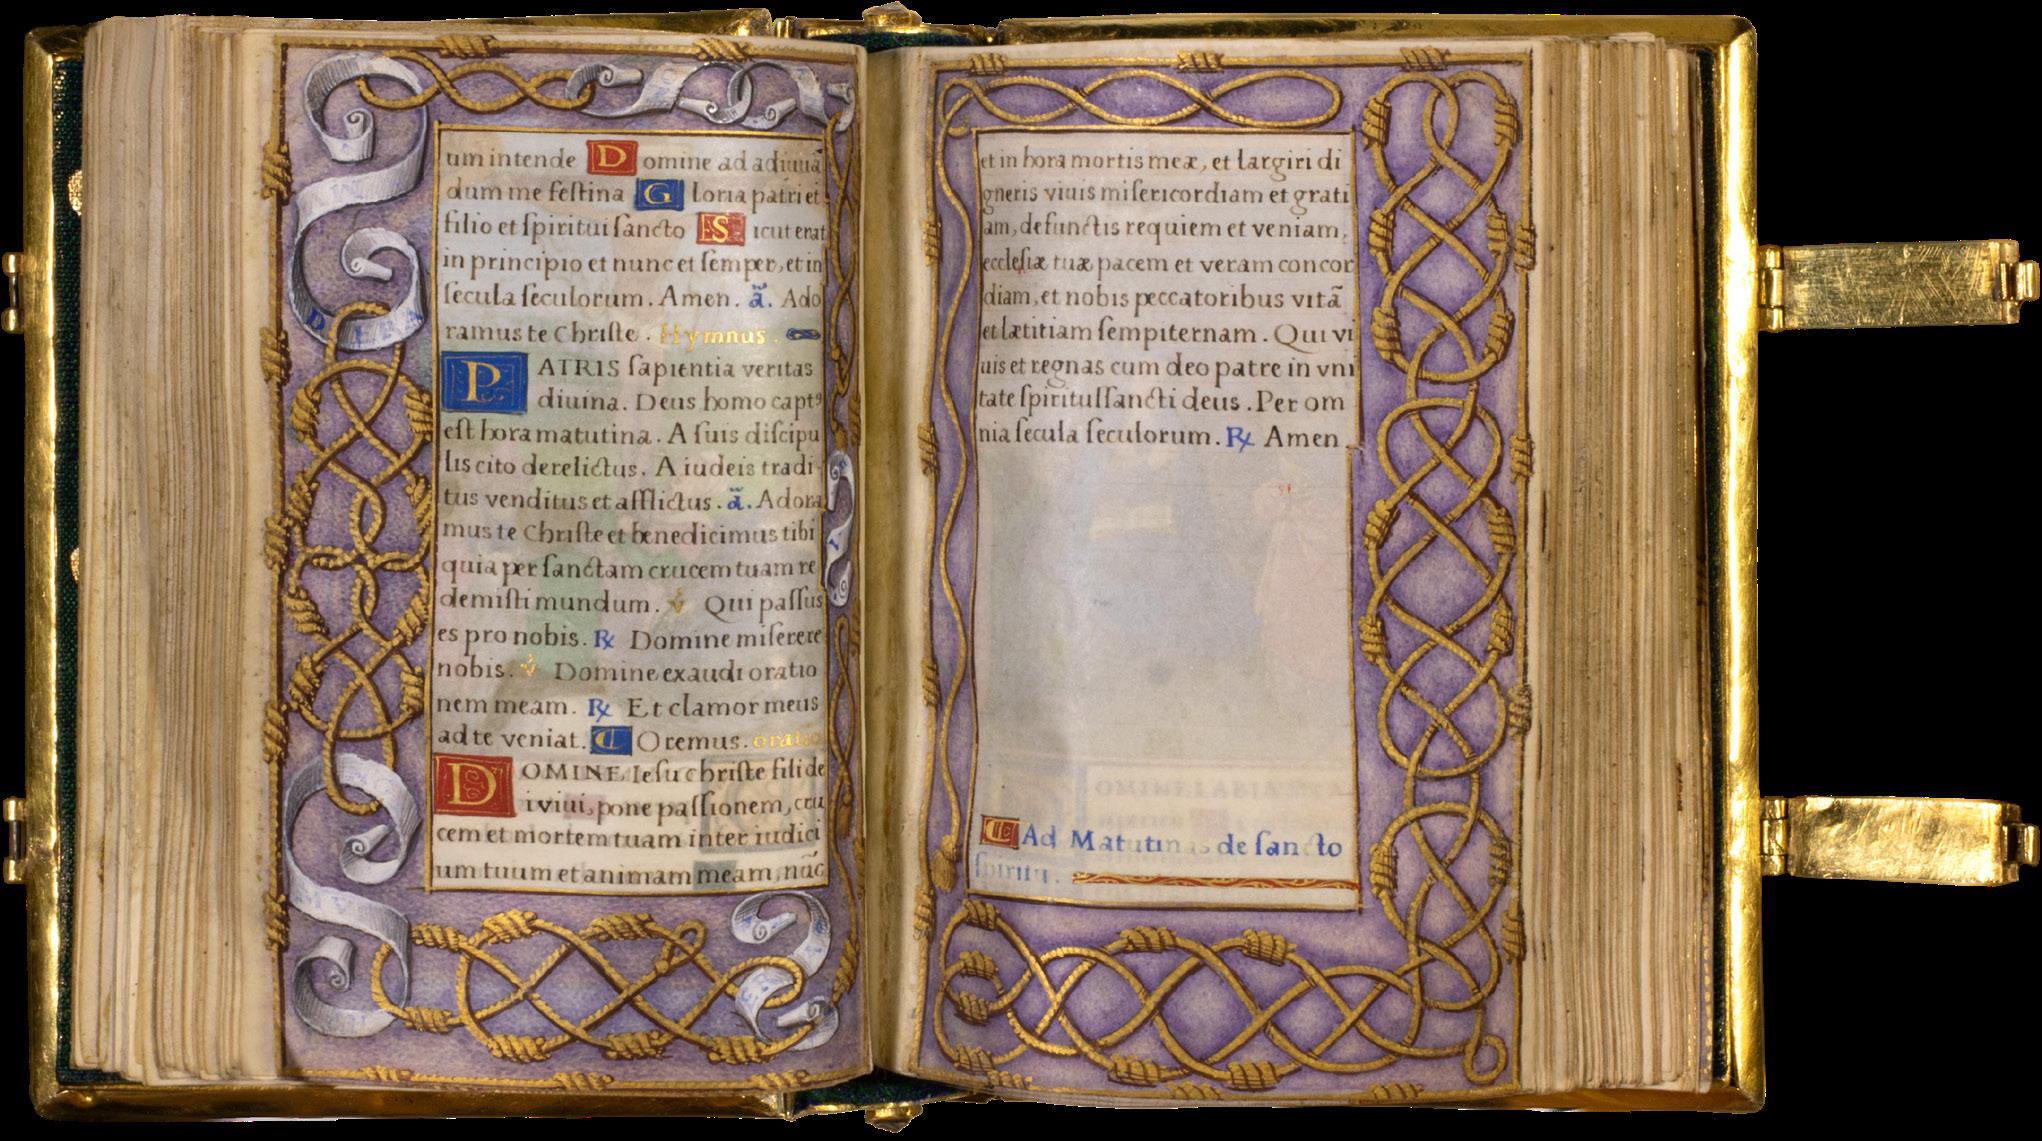 um intende D omine ad adiuuã
dum me feſtina G loria patri et
filio et ſpiritui ſancto S icut erat
in principio et nunc et ſemper, et in
ſecula ſeculorum. Amen. ã. Ado
ramus te Chriſte. Hymnus.
P ATRIS ſapientia veritas
diuina. Deus homo capt⁹
eſt hora matutina. A ſuis diſcipu
lis cito derelictus. A iudeis tradi
tus venditus et afflictus. ã. Adora
mus te Chriſte et benedicimus tibi
quia per ſanctam crucem tuam re
demiſti mundum. ℣ Qui paſſus
es pro nobis. ℞ Domine miſerere
nobis. ℣ Domine exaudi oratio
nem meam. ℞ Et clamor meus
ad te veniat. C Oremus. oratio
D OMINE Ieſu chriſte fili de
i viui, pone paſſionem, cru
cem et mortem tuam inter iudici
um tuum et animam meam, nũc
DIRA
et in hora mortis meæ, et largiri di
gneris viuis miſericordiam et grati
am, defunctis requiem et veniam,
eccleſiæ tuæ pacem et veram concor
diam, et nobis peccatoribus vitã
et lætitiam ſempiternam. Qui vi
uis et regnas cum deo patre in vni
tate ſpirituſſancti deus. Per om
nia ſecula ſeculorum. ℞ Amen
C Ad Matutinas de ſancto
ſpiritu.